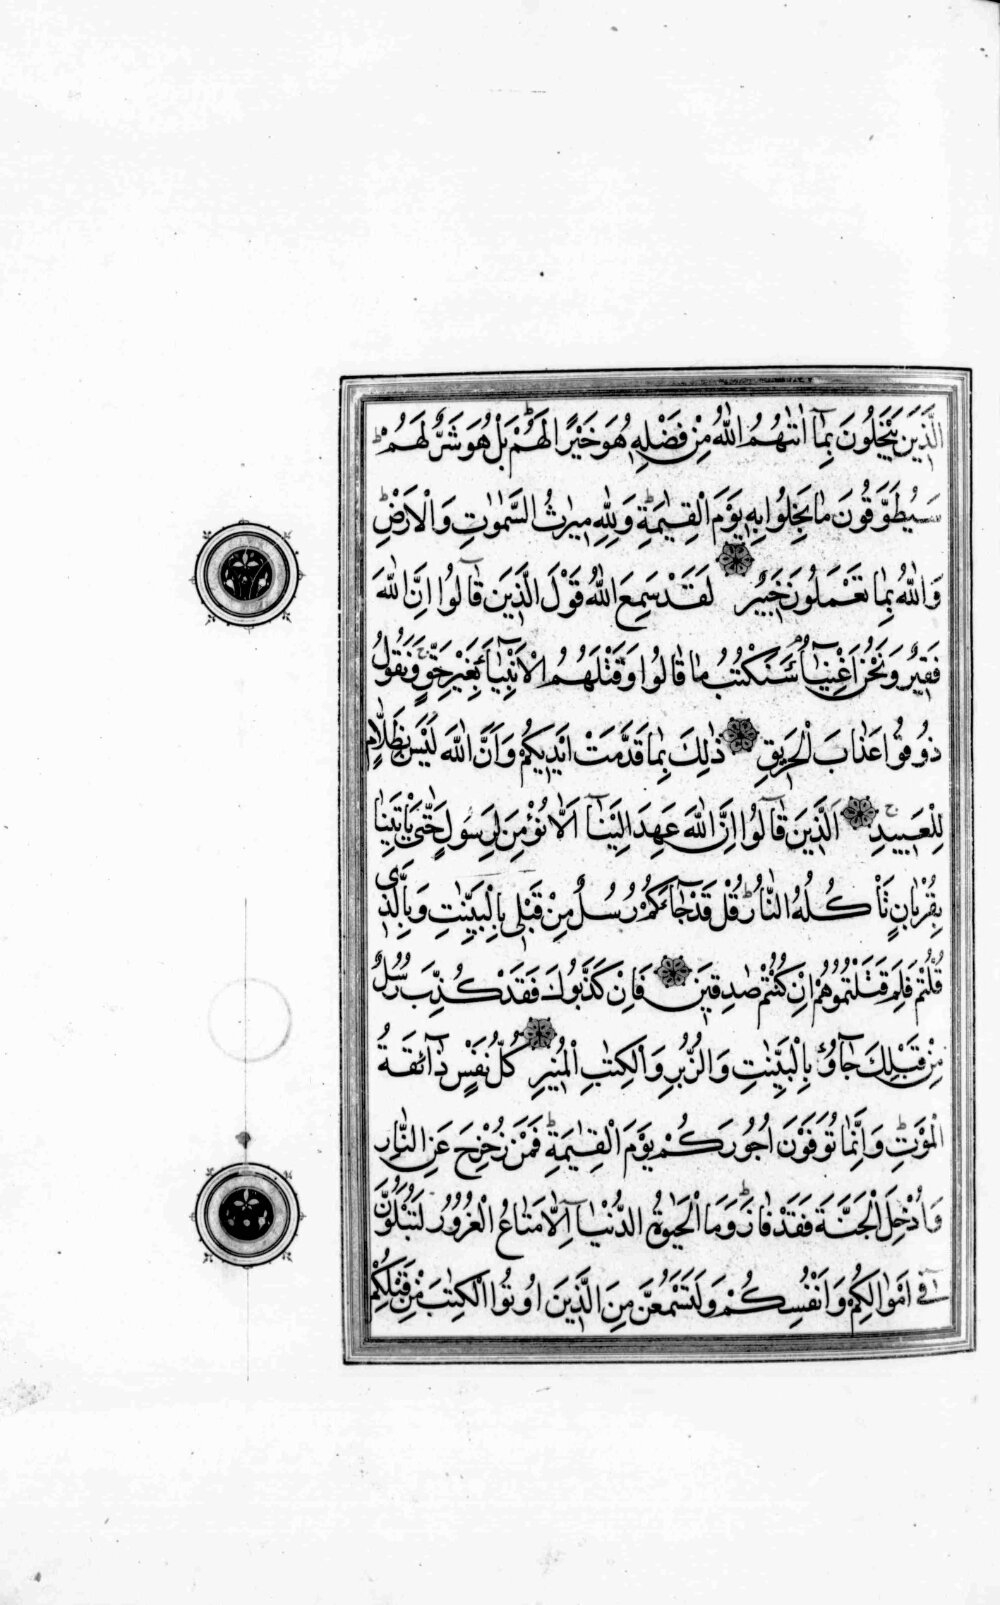 الَّذِينَ يَبْخَلُونَ بِمَآ اٰتٰىهُمُ اللّٰهُ مِنْ فَضْلِهِ هُوَ خَيْرًا لَهُمْ ط بَلْ هُوَ شَرٌّ لَهُمْ ط
سَيُطَوَّقُونَ مَا بَخِلُوا بِهِ يَوْمَ الْقِيٰمَةِ ط وَلِلّٰهِ مِيرٰثُ السَّمٰوٰتِ وَالْاَرْضِ ط
وَاللّٰهُ بِمَا تَعْمَلُونَ خَبِيرٌ لَقَدْ سَمِعَ اللّٰهُ قَوْلَ الَّذِينَ قَالُوٓا اِنَّ اللّٰهَ
فَقِيرٌ وَنَحْنُ اَغْنِيَآءُ م سَنَكْتُبُ مَا قَالُوا وَقَتْلَهُمُ الْاَنْبِيَآءَ بِغَيْرِ حَقٍّ ج وَنَقُولُ
ذُوقُوا عَذَابَ الْحَرِيقِ ذٰلِكَ بِمَا قَدَّمَتْ اَيْدِيكُمْ وَاَنَّ اللّٰهَ لَيْسَ بِظَلَّامٍ
لِلْعَبِيدِ ج اَلَّذِينَ قَالُوٓا اِنَّ اللّٰهَ عَهِدَ اِلَيْنَآ اَلَّا نُؤْمِنَ لِرَسُولٍ حَتّٰى يَاْتِيَنَا
بِقُرْبَانٍ تَاْكُلُهُ النَّارُ ط قُلْ قَدْ جَآءَكُمْ رُسُلٌ مِنْ قَبْلِى بِالْبَيِّنٰتِ وَبِالَّذِى
قُلْتُمْ فَلِمَ قَتَلْتُمُوهُمْ اِنْ كُنْتُمْ صٰدِقِينَ فَاِنْ كَذَّبُوكَ فَقَدْ كُذِّبَ رُسُلٌ
مِنْ قَبْلِكَ جَآؤُ بِالْبَيِّنٰتِ وَالزُّبُرِ وَالْكِتٰبِ الْمُنِيرِ كُلُّ نَفْسٍ ذَآئِقَةُ
الْمَوْتِ ط وَاِنَّمَا تُوَفَّوْنَ اُجُورَكُمْ يَوْمَ الْقِيٰمَةِ ط فَمَنْ زُحْزِحَ عَنِ النَّارِ
وَاُدْخِلَ الْجَنَّةَ فَقَدْ فَازَ ط وَمَا الْحَيٰوةُ الدُّنْيَآ اِلَّا مَتَاعُ الْغُرُورِ لَتُبْلَوُنَّ
فِىٓ اَمْوَالِكُمْ وَاَنْفُسِكُمْ وَلَتَسْمَعُنَّ مِنَ الَّذِينَ اُوتُوا الْكِتٰبَ مِنْ قَبْلِكُمْ